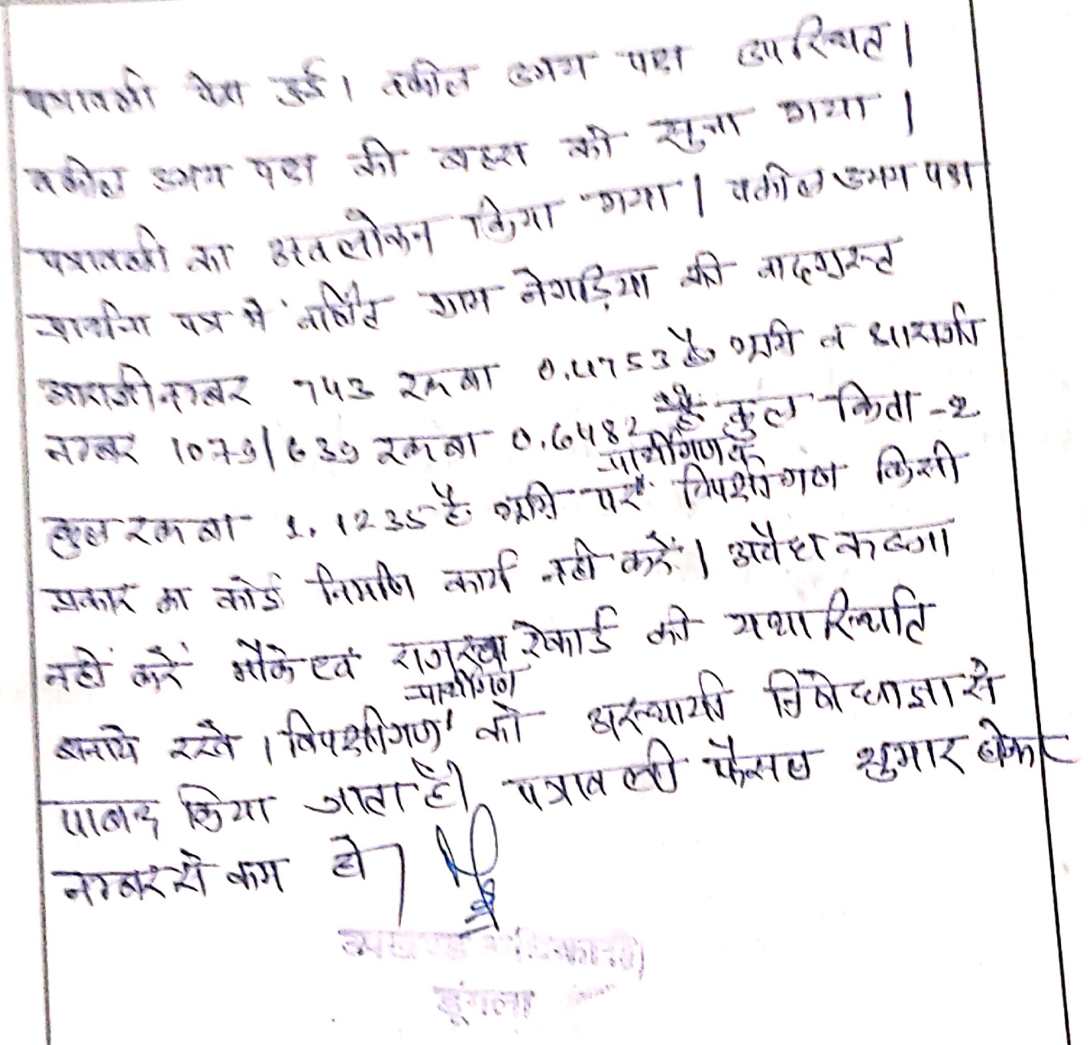 पत्रावली पेश हुई। वकील उभय पक्ष उपस्थित।
वकील उभय पक्ष की बहस को सुना गया।
पत्रावली का अवलोकन किया गया। वकील उभय पक्ष
प्रार्थना पत्र में वर्णित ग्राम नेगड़िया की वादग्रस्त
आराजी नम्बर 743 रकबा 0.4753 है० भूमि व आराजी
नम्बर 1079/639 रकबा 0.6482 है कुल किता-2
प्रार्थीगण के
कुल रकबा 1.1235 है भूमि पर विपक्षीगण किसी
प्रकार का कोई निर्माण कार्य नहीं करें। अवैध कब्जा
नहीं करें मौके एवं राजस्व रेकार्ड की यथास्थिति
प्रार्थीगण
बनाये रखे। विपक्षीगण को अस्थायी निषेधाज्ञा से
पाबन्द किया जाता है। पत्रावली फैसल शुमार होकर
नम्बर से कम हो।
उपखण्ड अधिकारी
डूंगला